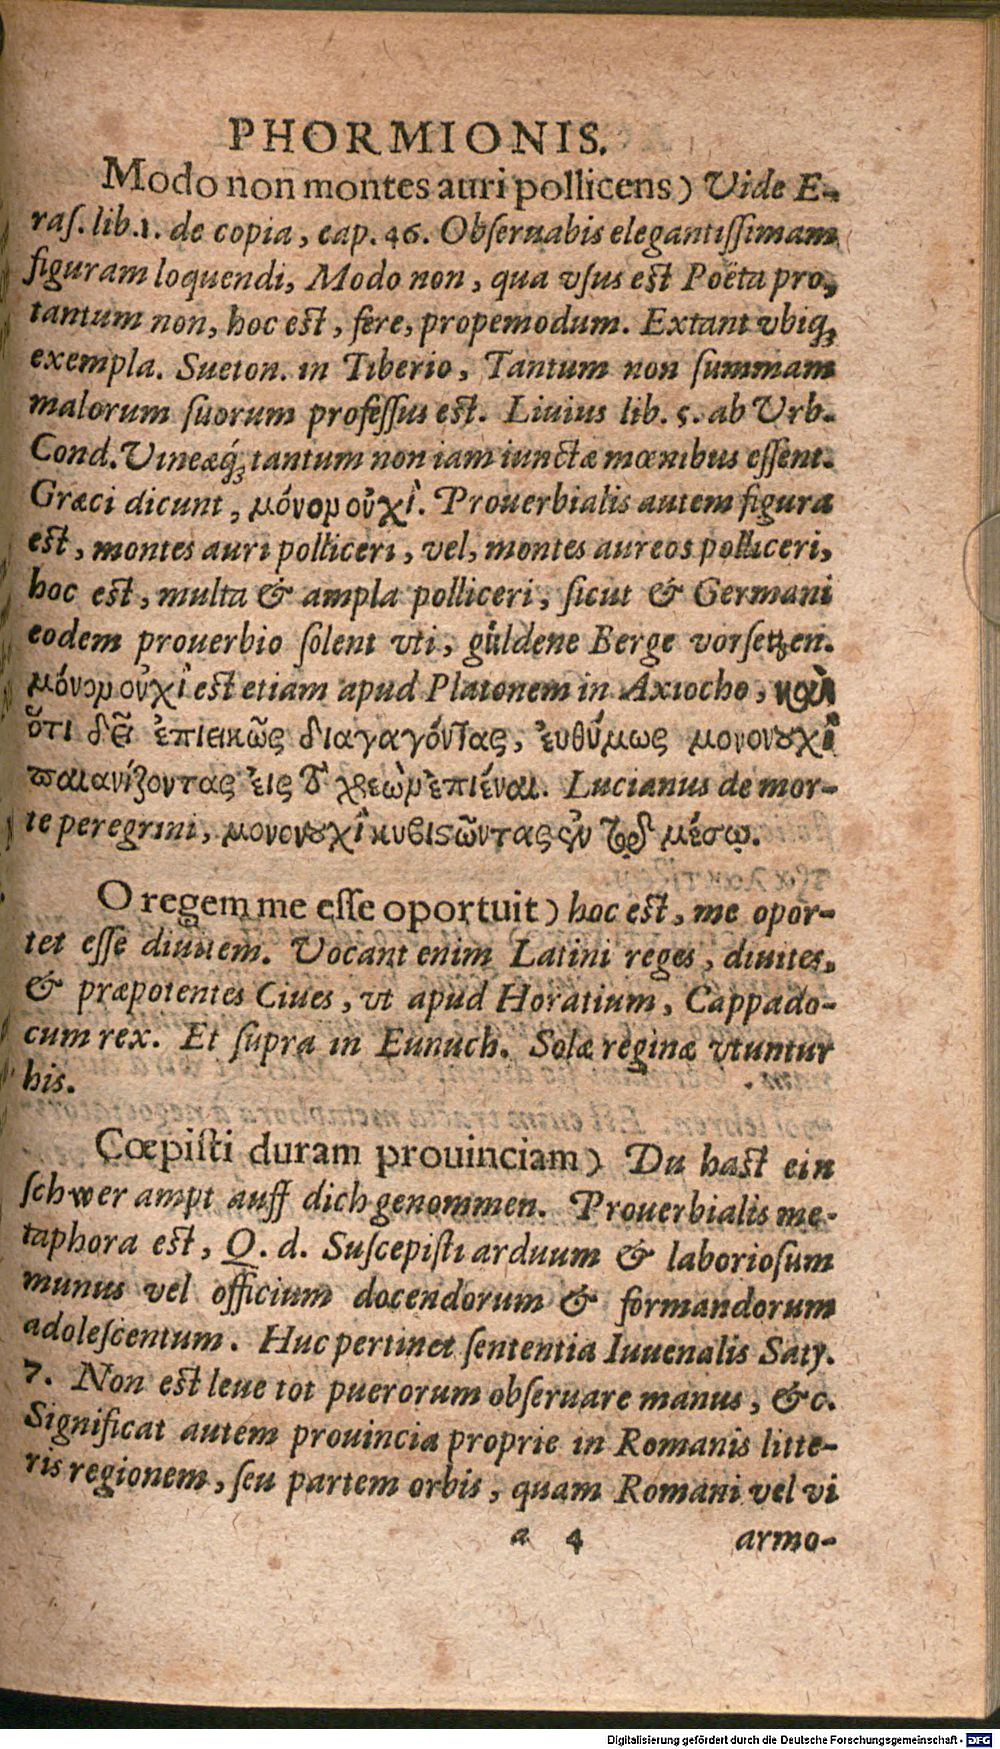 PHORMIONIS.
Modo non montes auri pollicens) Vide E-
raſ. lib.1. de copia, cap. 46. Obſeruabis elegantiſſimam
figuram loquendi, Modo non, qua vſus est Poëta pro,
tantum non, hoc est, fere, propemodum. Extant vbiq;
exempla. Sueton. in Tiberio, Tantum non ſummam
malorum ſuorum profeſſus est. Liuius lib. 5. ab Vrb.
Cond. Vineæq́; tantum non iam iunctæ mœnibus eſſent.
Græci dicunt, μόνον οὐχὶ. Prouerbialis autem figura
est, montes auri polliceri, vel, montes aureos polliceri,
hoc est, multa & ampla polliceri, ſicut & Germani
eodem prouerbio ſolent vti, güldene Berge vorſetzen.
μόνον οὐχὶ est etiam apud Platonem in Axiocho, καὶ
ὅτι δεῖ ἐπιεικῶς διαγαγόντας, ἐυθύμως μονονουχὶ
παιανίζοντας ἐις τὸ χρεὼν ἐπιέναι. Lucianus de mor-
te peregrini, μονονουχὶ κυβιστῶντας ἐν τῷ μέσῳ.
O regem me eſſe oportuit) hoc est, me opor-
tet eſſe diuitem. Vocant enim Latini reges, diuites,
& præpotentes Ciues, vt apud Horatium, Cappado-
cum rex. Et ſupra in Eunuch. Solæ reginæ vtuntur
his.
Cœpiſti duram prouinciam) Du hast ein
ſchwer ampt auff dich genommen. Prouerbialis me-
taphora est, Q. d. Suſcepiſti arduum & laborioſum
munus vel officium docendorum & formandorum
adoleſcentum. Huc pertinet ſententia Iuuenalis Saty.
7. Non est leue tot puerorum obſeruare manus, &c.
Significat autem prouincia proprie in Romanis litte-
ris regionem, ſeu partem orbis, quam Romani vel vi
a 4 armo-
Digitalisierung gefördert durch die Deutsche Forschungsgemeinschaft - DFG